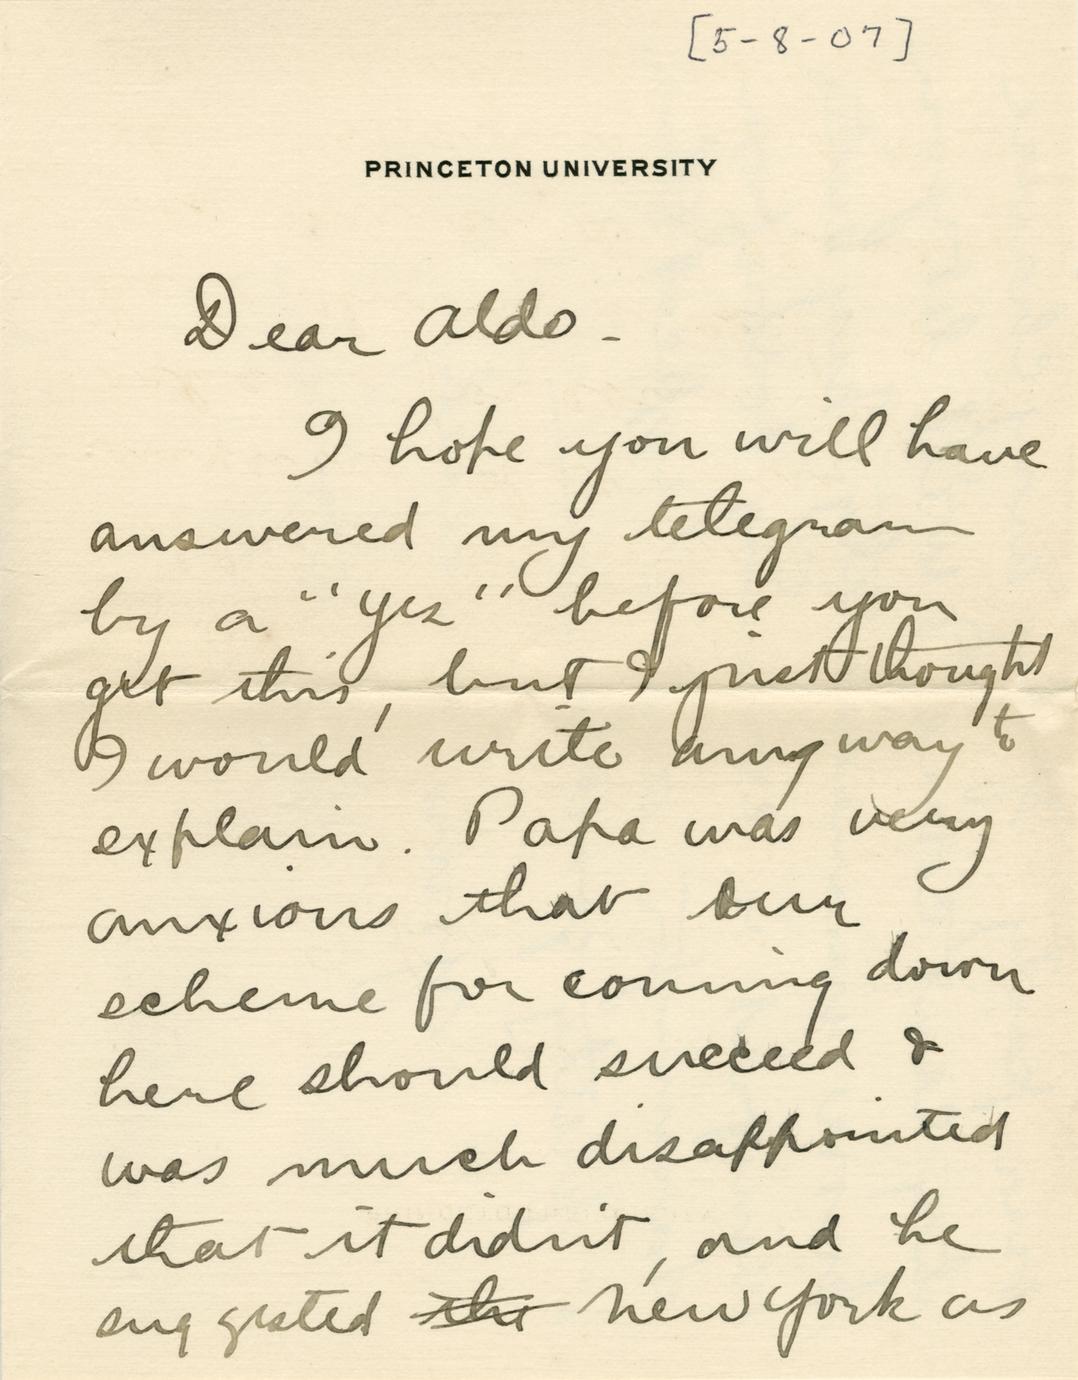 [5-8-07]
PRINCETON UNIVERSITY
Dear Aldo -
I hope you will have
answered my telegram
by a "Yes" before you
get this, but I just thought
I would write anyway to
explain. Papa was very
anxious that our
scheme for coming down
here should succeed &
was much disappointed
that it didn't, and he
suggested the New York as